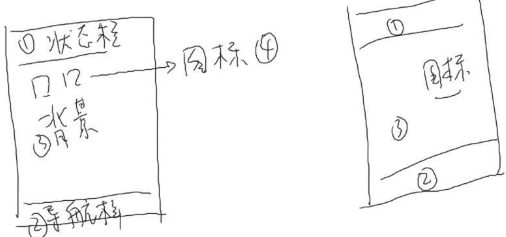 ① 状态栏
口口
图标 ④
背景
③
② 导航栏
①
图标
③
②